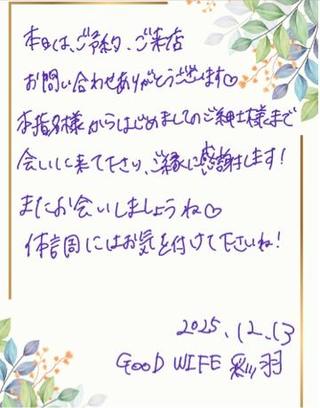 本日は、ご予約、ご来店
お問い合わせありがとうございます♡
本指名様からはじめましてのご紳士様まで
会いに来て下さり、ご縁に感謝します!
またお会いしましょうね♡
体調にはお気を付けて下さいね!
2025.12.13
GOOD WIFE 彩羽